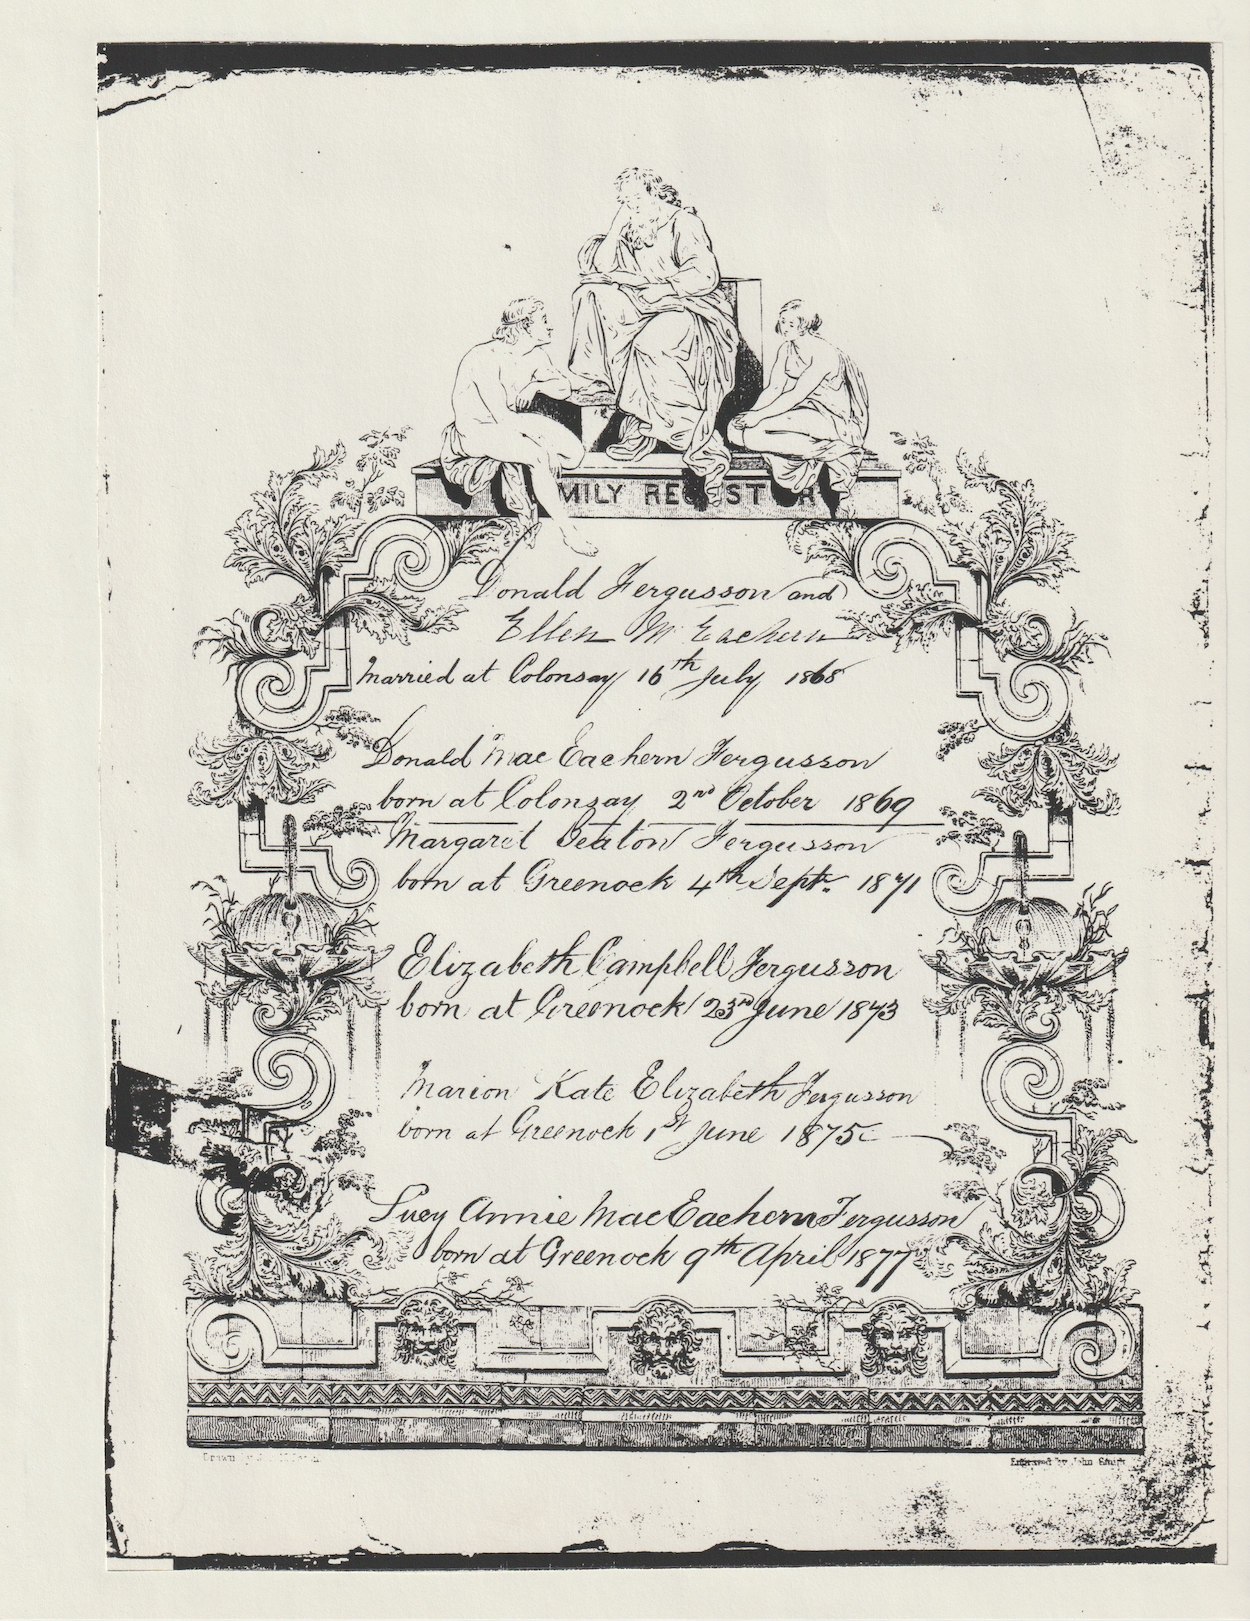 MILY REGISTER
Donald Fergusson and
Ellen McEachern
Married at Colonsay 16th July 1868
Donald MacEachern Fergusson
born at Colonsay 2nd October 1869
Margaret Beaton Fergusson
born at Greenock 4th Sept. 1871
Elizabeth Campbell Fergusson
born at Greenock 23rd June 1873
Marion Kate Elizabeth Fergusson
born at Greenock 1st June 1875
Lucy Annie MacEachern Fergusson
born at Greenock 9th April 1877
Drawn by
Engraved by John